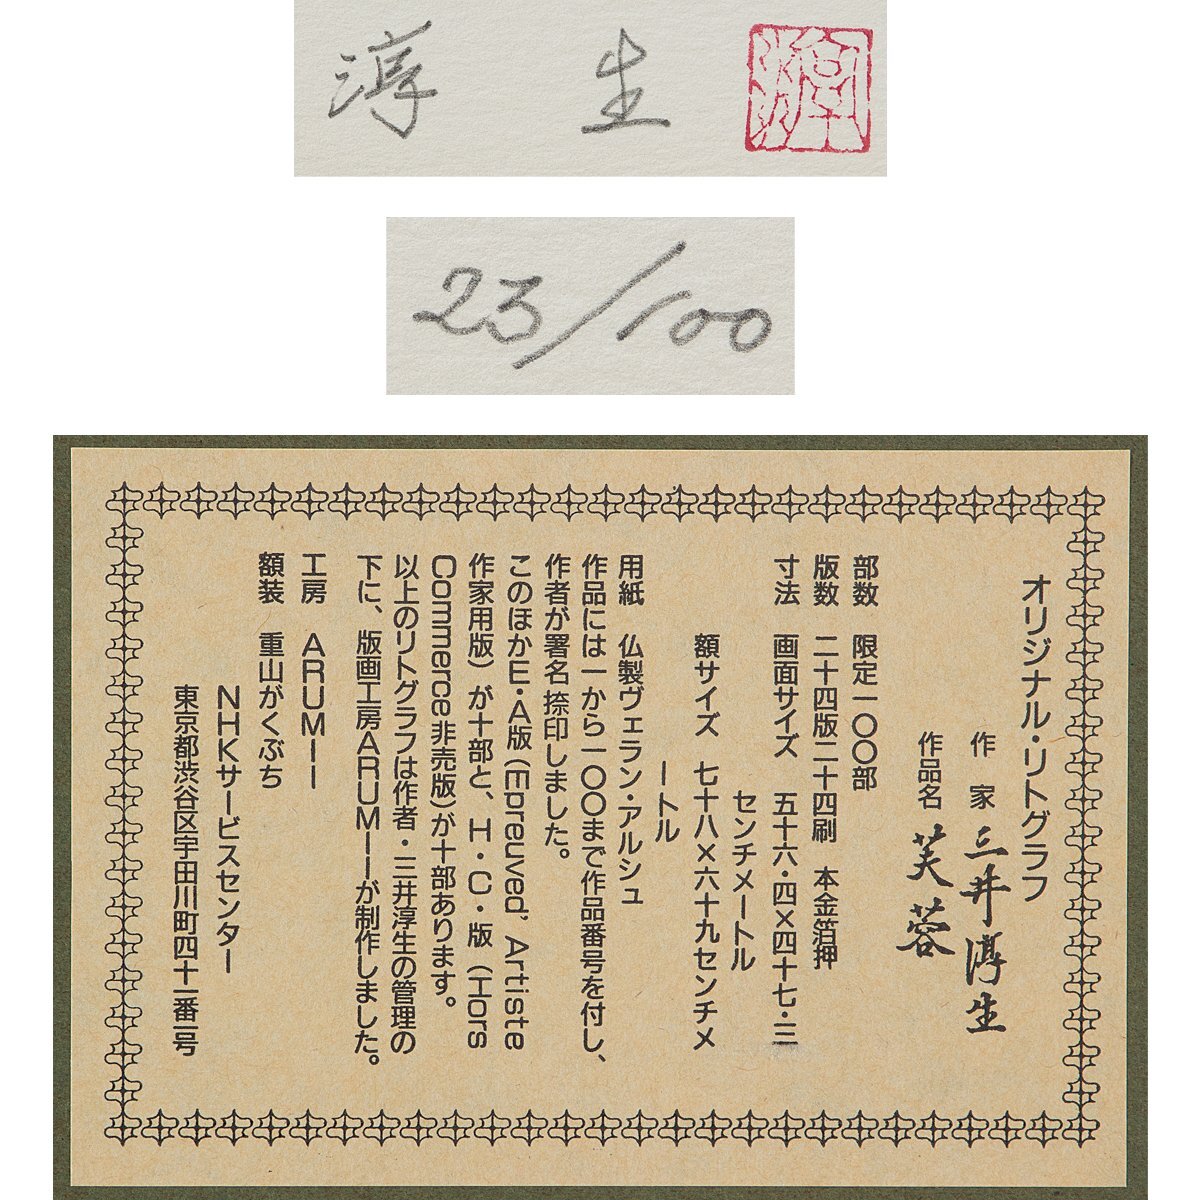 淳 生
淳
23/100
オリジナル・リトグラフ
作 家 三井淳生
作品名 芙蓉
部数 限定一〇〇部
版数 二十四版二十四刷 本金箔押
寸法 画面サイズ 五十六・四×四十七・三
センチメートル
額サイズ 七十八×六十九センチメ
ートル
用紙 仏製ヴェラン・アルシュ
作品には一から一〇〇まで作品番号を付し、
作者が署名捺印しました。
このほかE・A版(Epreuved' Artiste
作家用版)が十部と、H・C・版(Hors
Commerce非売版)が十部あります。
以上のリトグラフは作者・三井淳生の管理の
下に、版画工房ARUMIIが制作しました。
工房 ARUMII
額装 重山がくぶち
NHKサービスセンター
東京都渋谷区宇田川町四十一番一号